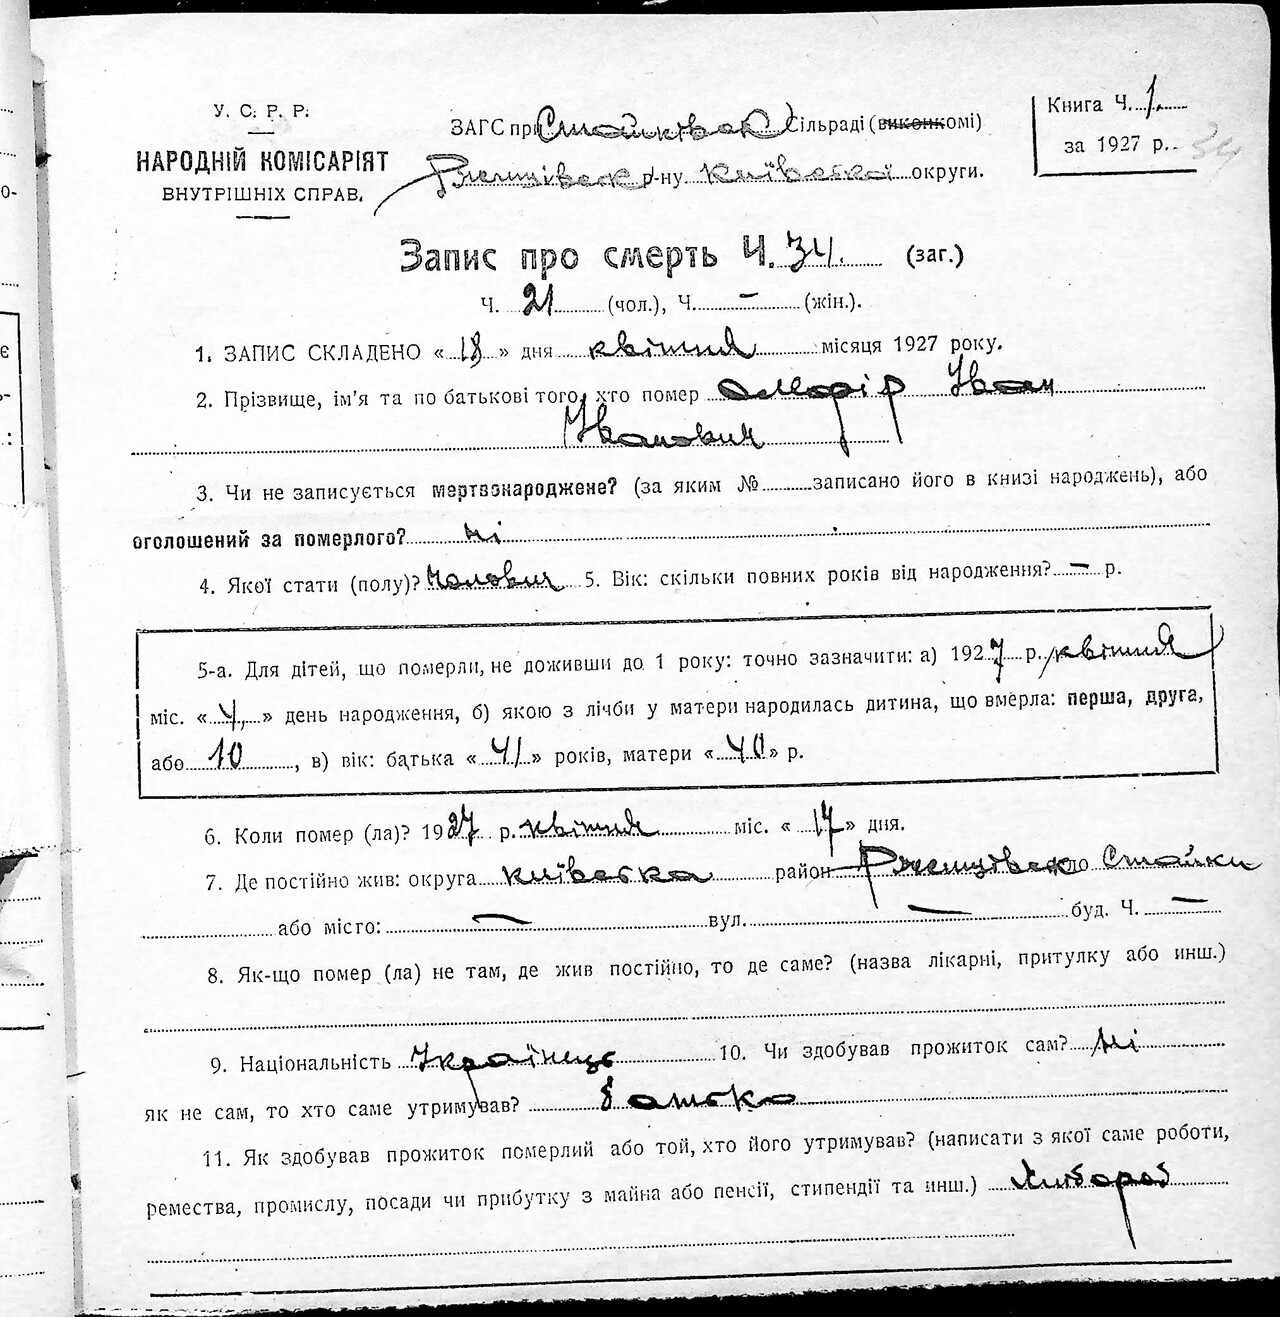 У. С. Р. Р.
НАРОДНІЙ КОМІСАРІЯТ
ВНУТРІШНІХ СПРАВ.
ЗАГС при Стайківск Сільраді (виконкомі)
Ржищівськ р-ну Київської округи.
Книга Ч. 1.
за 1927 р. 34
Запис про смерть Ч. 34. (заг.)
Ч. 21 (чол.), Ч. – (жін.).
1. ЗАПИС СКЛАДЕНО « 18 » дня квітня місяця 1927 року.
2. Прізвище, ім'я та по батькові того, хто помер Іван
Іванович
3. Чи не записується мертвонароджене? (за яким № записано його в книзі народжень), або
оголошений за померлого? ні
4. Якої стати (полу)? Чолович 5. Вік: скільки повних років від народження? – р.
5-а. Для дітей, що померли, не доживши до 1 року: точно зазначити: а) 1927 р. квітня
міс. « 4, » день народження, б) якою з лічби у матери народилась дитина, що вмерла: перша, друга,
або 10, в) вік: батька « 41 » років, матери « 40 » р.
6. Коли помер (ла)? 1927 р. квітня міс. « 17 » дня.
7. Де постійно жив: округа Київська район Ржищівск Стайки
або місто: – вул. – буд. Ч. –
8. Як-що помер (ла) не там, де жив постійно, то де саме? (назва лікарні, притулку або инш.)
9. Національність Українець 10. Чи здобував прожиток сам? Ні
як не сам, то хто саме утримував? батько
11. Як здобував прожиток померлий або той, хто його утримував? (написати з якої саме роботи,
ремества, промислу, посади чи прибутку з майна або пенсії, стипендії та инш.) Хлібороб